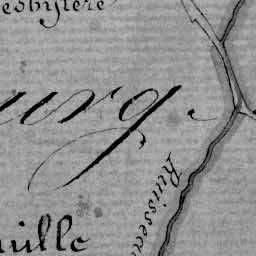 esbytere
urg.
Ruissea
uille